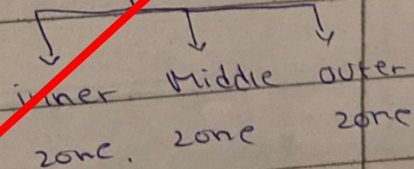 inner Middle outer
zone. zone zone